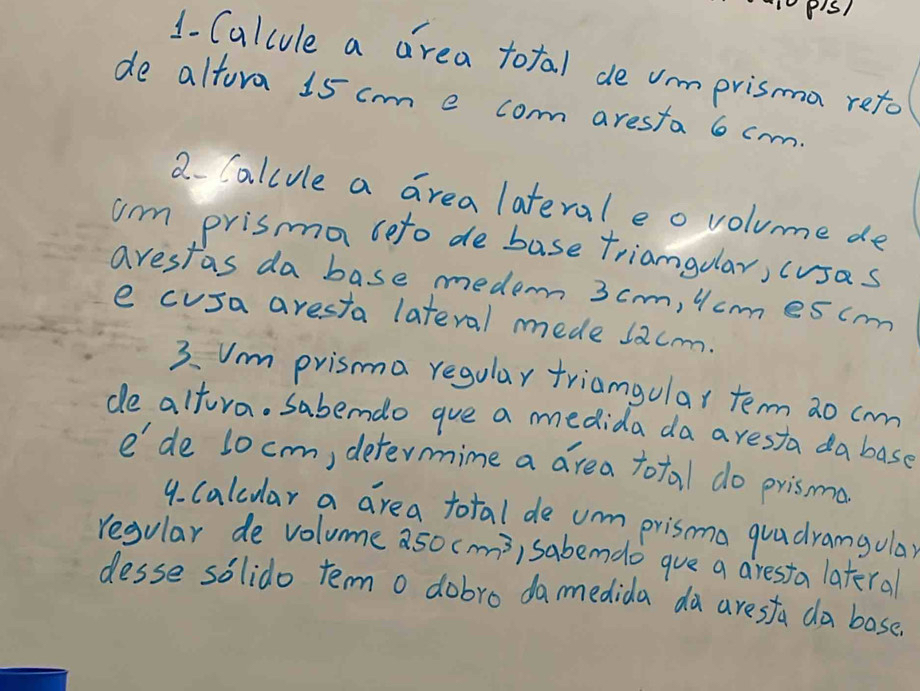 1- Calcule a área total de um prisma reto
de altura 15 cm e com aresta 6 cm.
2- Calcule a área lateral e o volume de
um prisma reto de base triangular, cujas
arestas da base medem 3 cm, 4 cm e 5 cm
e cuja aresta lateral mede 12 cm.
3- Um prisma regular triangular tem 20 cm
de altura. Sabendo que a medida da aresta da base
é de 10 cm, determine a área total do prisma.
4- Calcular a área total de um prisma quadrangular
regular de volume 250 cm³, sabendo que a aresta lateral
desse sólido tem o dobro da medida da aresta da base.